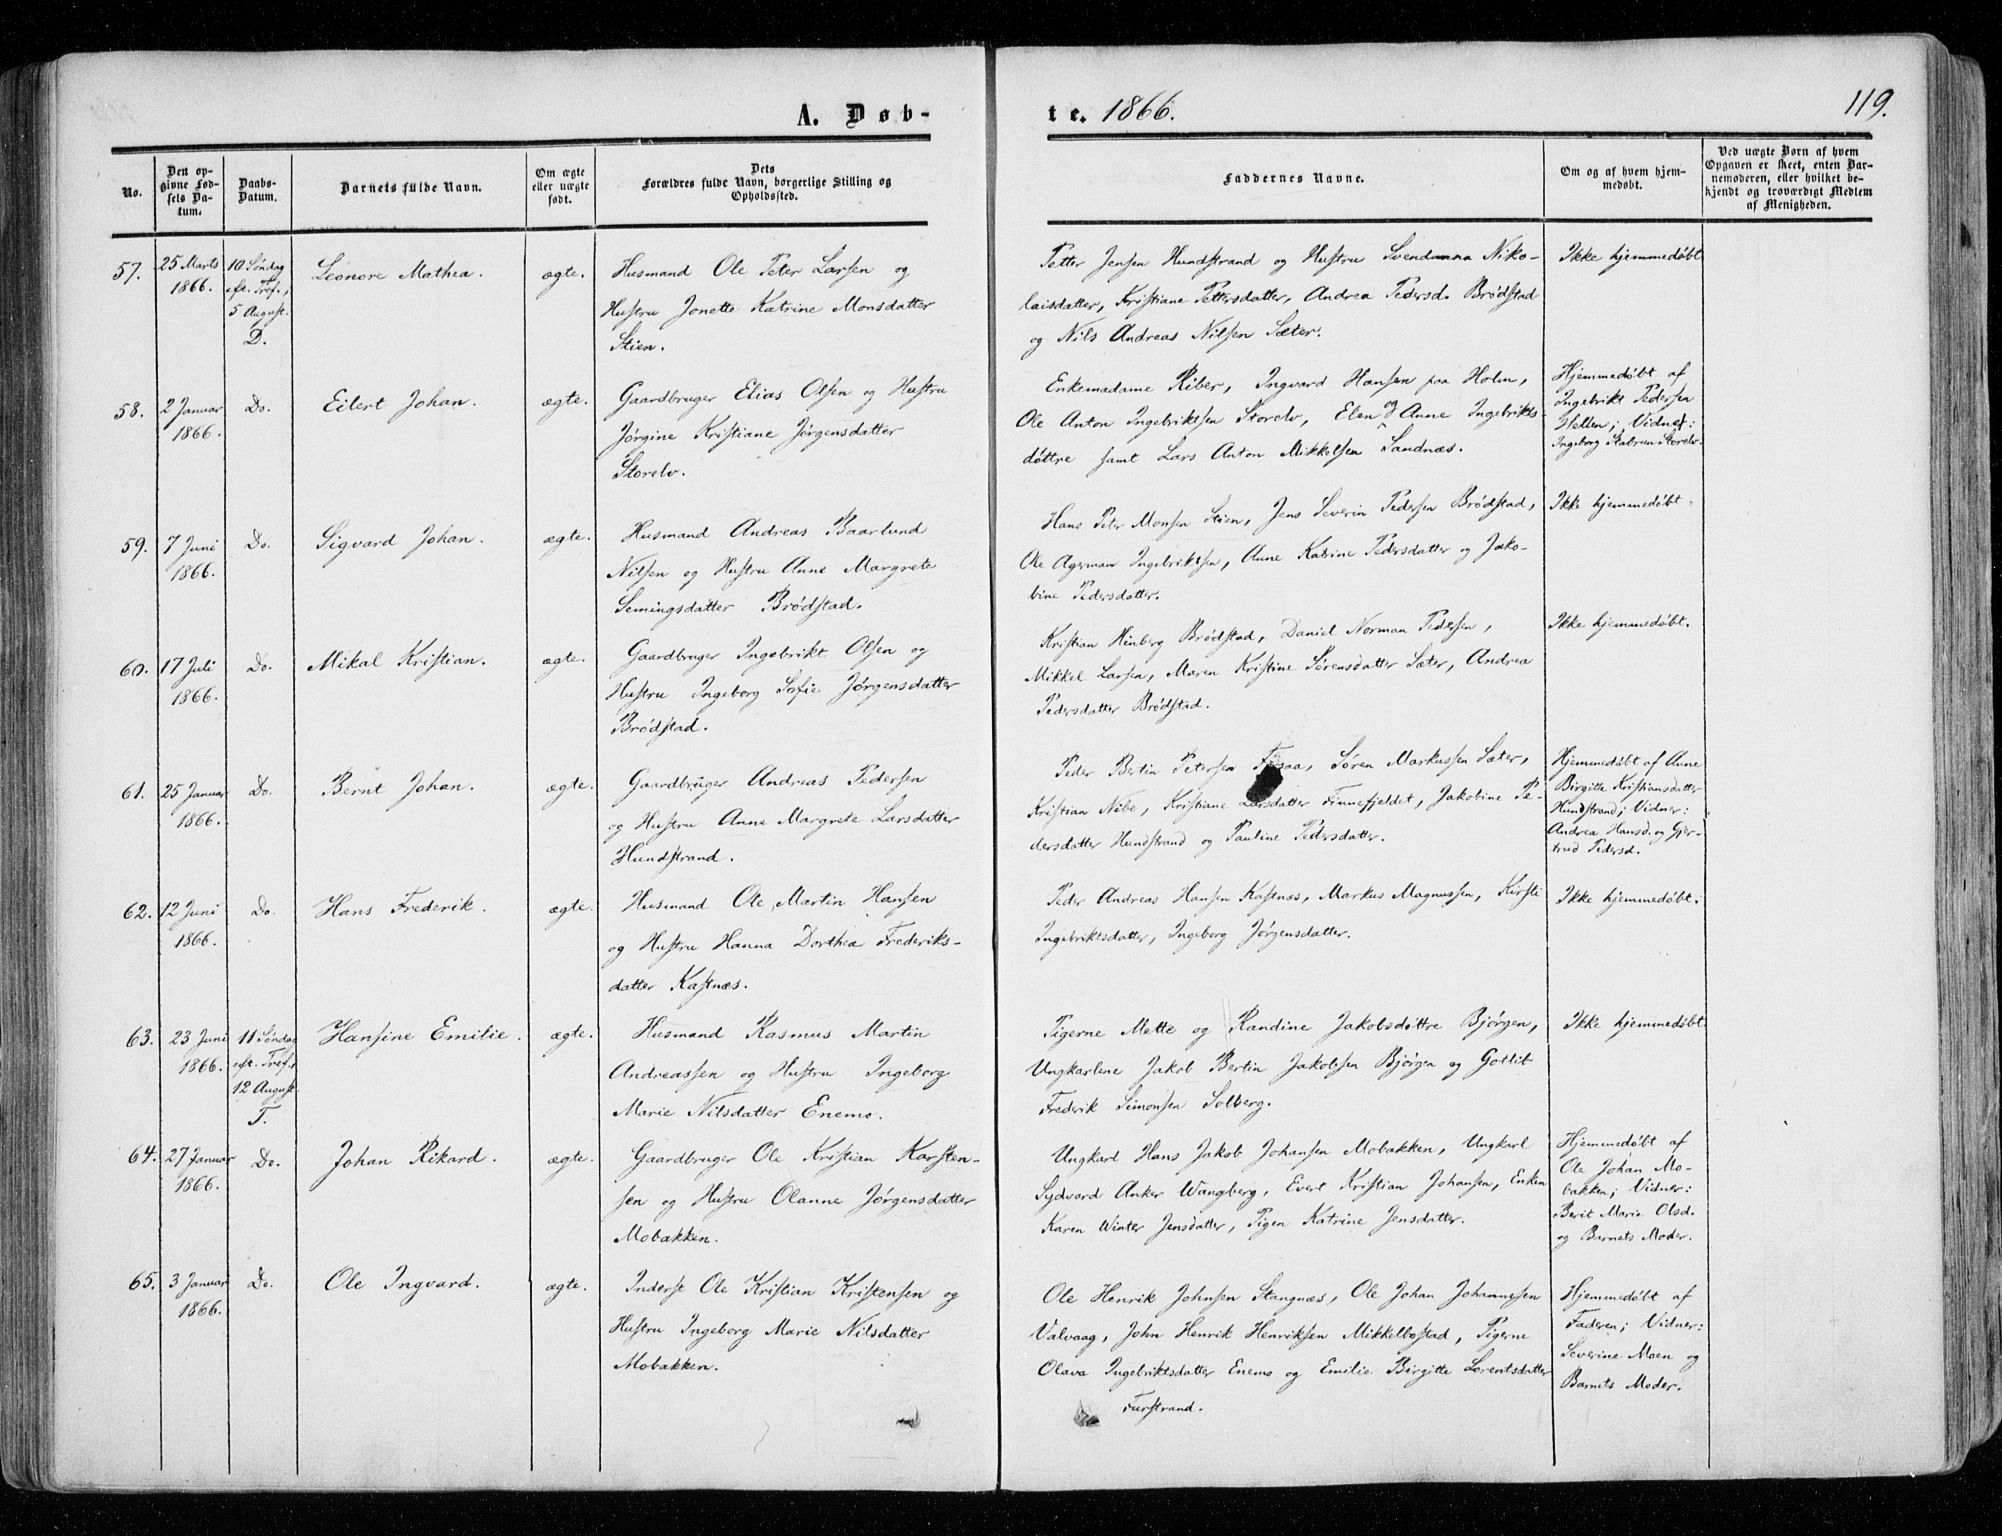 A. Døb-
te. 1866.
119.
No.
Den op-
givne Fød-
sels Da-
tum.
Daabs-
Datum.
Barnets fulde Navn.
Om ægte
eller uægte
født.
Dets
Forældres fulde Navn, borgerlige Stilling og
Opholdssted.
Faddernes Navne.
Om og af hvem hjem-
medøbt.
Ved uægte Børn af hvem
Opgaven er skeet, enten Bar-
nemoderen, eller hvilket be-
kjendt og troværdigt Medlem
af Menigheden.
57.
25 Marts
1866.
10 Søndag
eft. Tref.,
5 August.
D.
Leonore Mathea.
ægte.
Husmand Ole Peter Larsen og
Hustru Jonette Katrine Monsdatter
Stien.
Petter Jensen Hundstrand og Hustru Svendmna Niko-
laisdatter, Kristiane Pettersdatter, Andrea Pedersd. Brødstad
og Nils Andreas Nilsen Sæter.
Ikke hjemmedøbt
58.
2 Januar
1866.
Do.
Eilert Johan.
ægte.
Gaardbruger Elias Olsen og Hustru
Jørgine Kristiane Jørgensdatter
Storelv.
Enkemadame Riber, Ingvard Hansen paa Holm,
Ole Anton Ingebriktsen Storelv, Elen og Anne Ingebrikts-
døttre samt Lars Anton Mikkelsen Sandnæs.
Hjemmedøbt af
Ingebrikt Pedersen
Hellen; Vidner:
Ingeborg Katrine Storelv.
59.
7 Juni
1866.
Do.
Sigvard Johan.
ægte.
Husmand Andreas Baarlund
Nilsen og Hustru Anne Margrete
Semingsdatter Brødstad.
Hans Peter Monsen Stien, Jens Severin Pedersen Brødstad,
Ole Agerman Ingebriktsen, Anne Katrine Pedersdatter og Jako-
bine Pedersdatter.
Ikke hjemmedøbt
60.
17 Juli
1866.
Do.
Mikal Kristian.
ægte.
Gaardbruger Ingebrikt Olsen og
Hustru Ingeborg Sofie Jørgensdatter
Brødstad.
Kristian Hinberg Brødstad, Daniel Norman Pedersen,
Mikkel Larsen, Maren Kristine Sørensdatter Sæter, Andrea
Pedersdatter Brødstad.
Ikke hjemmedøbt.
61.
25 Januar
1866.
Do.
Bernt Johan.
ægte.
Gaardbruger Andreas Pedersen
og Hustru Anne Margrete Larsdatter
Hundstrand.
Peder Bertin Petersen Søren Markussen Sæter,
Kristian Nibe, Kristiane Larsdatter Finnefjeldet, Jakobine Pe-
dersdatter Hundstrand og Pauline Pedersdatter.
Hjemmedøbt af Anne
Birgitte Kristiansdatter
Hundstrand; Vidner:
Andrea Hansd. og Gjer-
trud Pedersd.
62.
12 Juni
1866.
Do.
Hans Frederik.
ægte.
Husmand Ole Martin Hansen
og Hustru Hanna Dorthea Frederiks-
datter Kastnæs.
Peder Andreas Hansen Kastnæs, Markus Magnussen, Kirsti
Ingebriktsdatter, Ingeborg Jørgensdatter.
Ikke hjemmedøbt.
63.
23 Juni
1866.
11 Søndag
eft. Tref.,
12 August
T.
Hansine Emilie.
ægte.
Husmand Rasmus Martin
Andreassen og Hustru Ingeborg
Marie Nilsdatter Enemo.
Pigerne Mette og Randine Jakobsdøttre Bjørgen,
Ungkarlene Jakob Bertin Jakobsen Bjørgen og Gottlib
Frederik Simonsen Solberg.
Ikke hjemmedøbt
64.
27 Januar
1866.
Do.
Johan Rikard.
ægte.
Gaardbruger Ole Kristian Karsten-
sen og Hustru Olanne Jørgensdatter
Mobakken.
Ungkarl Hans Jakob Johansen Mobakken, Ungkarl
Sydvard Anker Wangberg, Evert Kristian Johansen, Enken
Karen Winter Jensdatter, Pigen Katrine Jensdatter.
Hjemmedøbt af
Ole Johan Mo-
bakken; Vidner:
Berit Marie Olsd.
og Barnets Moder.
65.
3 Januar
1866.
Do.
Ole Ingvard.
ægte.
Inderst Ole Kristian Kristensen og
Hustru Ingeborg Marie Nilsdatter
Mobakken.
Ole Henrik Johnsen Stangnæs, Ole Johan Johannesen
Valvaag, John Henrik Henriksen Mikkelbostad, Pigerne
Olava Ingebriktsdatter Enemo og Emilie Birgitte Lorentsdatter
Furstrand.
Hjemmedøbt af
Faderen; Vidner:
Severine Moen og
Barnets Moder.